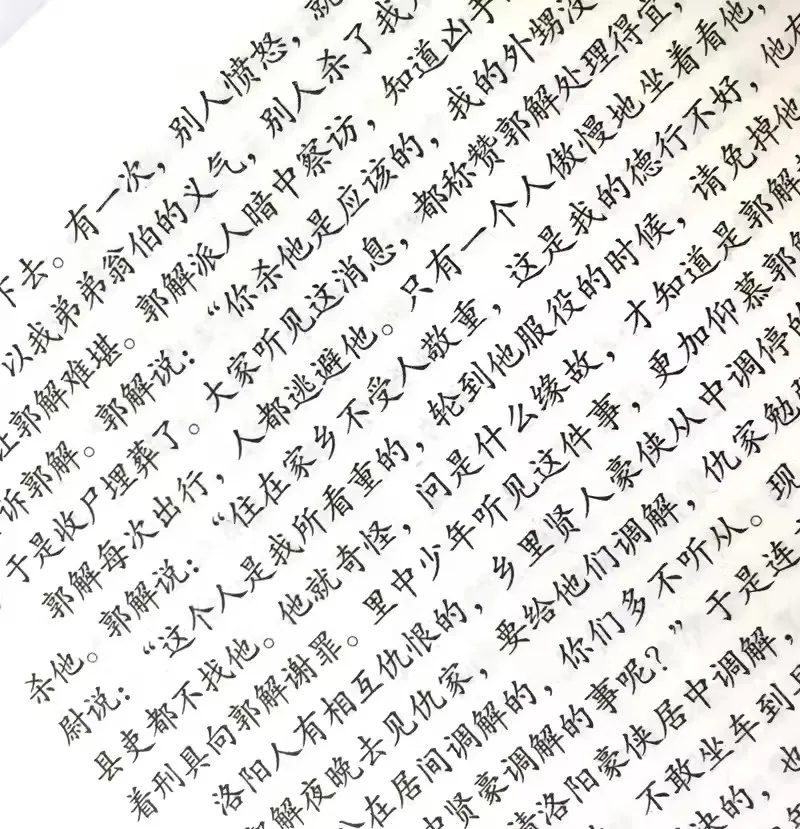 下去。有一次，别人愤怒，就
以我弟弟翁伯的义气，别人杀了我
让郭解难堪。郭解派人暗中察访，知道凶手
诉郭解。郭解说：“你杀他是应该的，我的外甥没
于是收尸埋葬了。大家听见这消息，都称赞郭解处理得宜，
郭解每次出行，人都逃避他。只有一个人傲慢地坐着看他，
杀他。郭解说：“住在家乡不受人敬重，这是我的德行不好，他有
尉说：“这个人是我所看重的，轮到他服役的时候，请免掉他
县吏都不找他。他就奇怪，问是什么缘故，才知道是郭解
着刑具向郭解谢罪。里中少年听见这件事，更加仰慕郭解
洛阳人有相互仇恨的，乡里贤人豪侠从中调停的
解夜晚去见仇家，要给他们调解，仇家勉
在居间调解的，你们多不听从。现
中贤豪调解的事呢？”于是连
请洛阳豪侠居中调解，
不敢坐车到县
决的，也